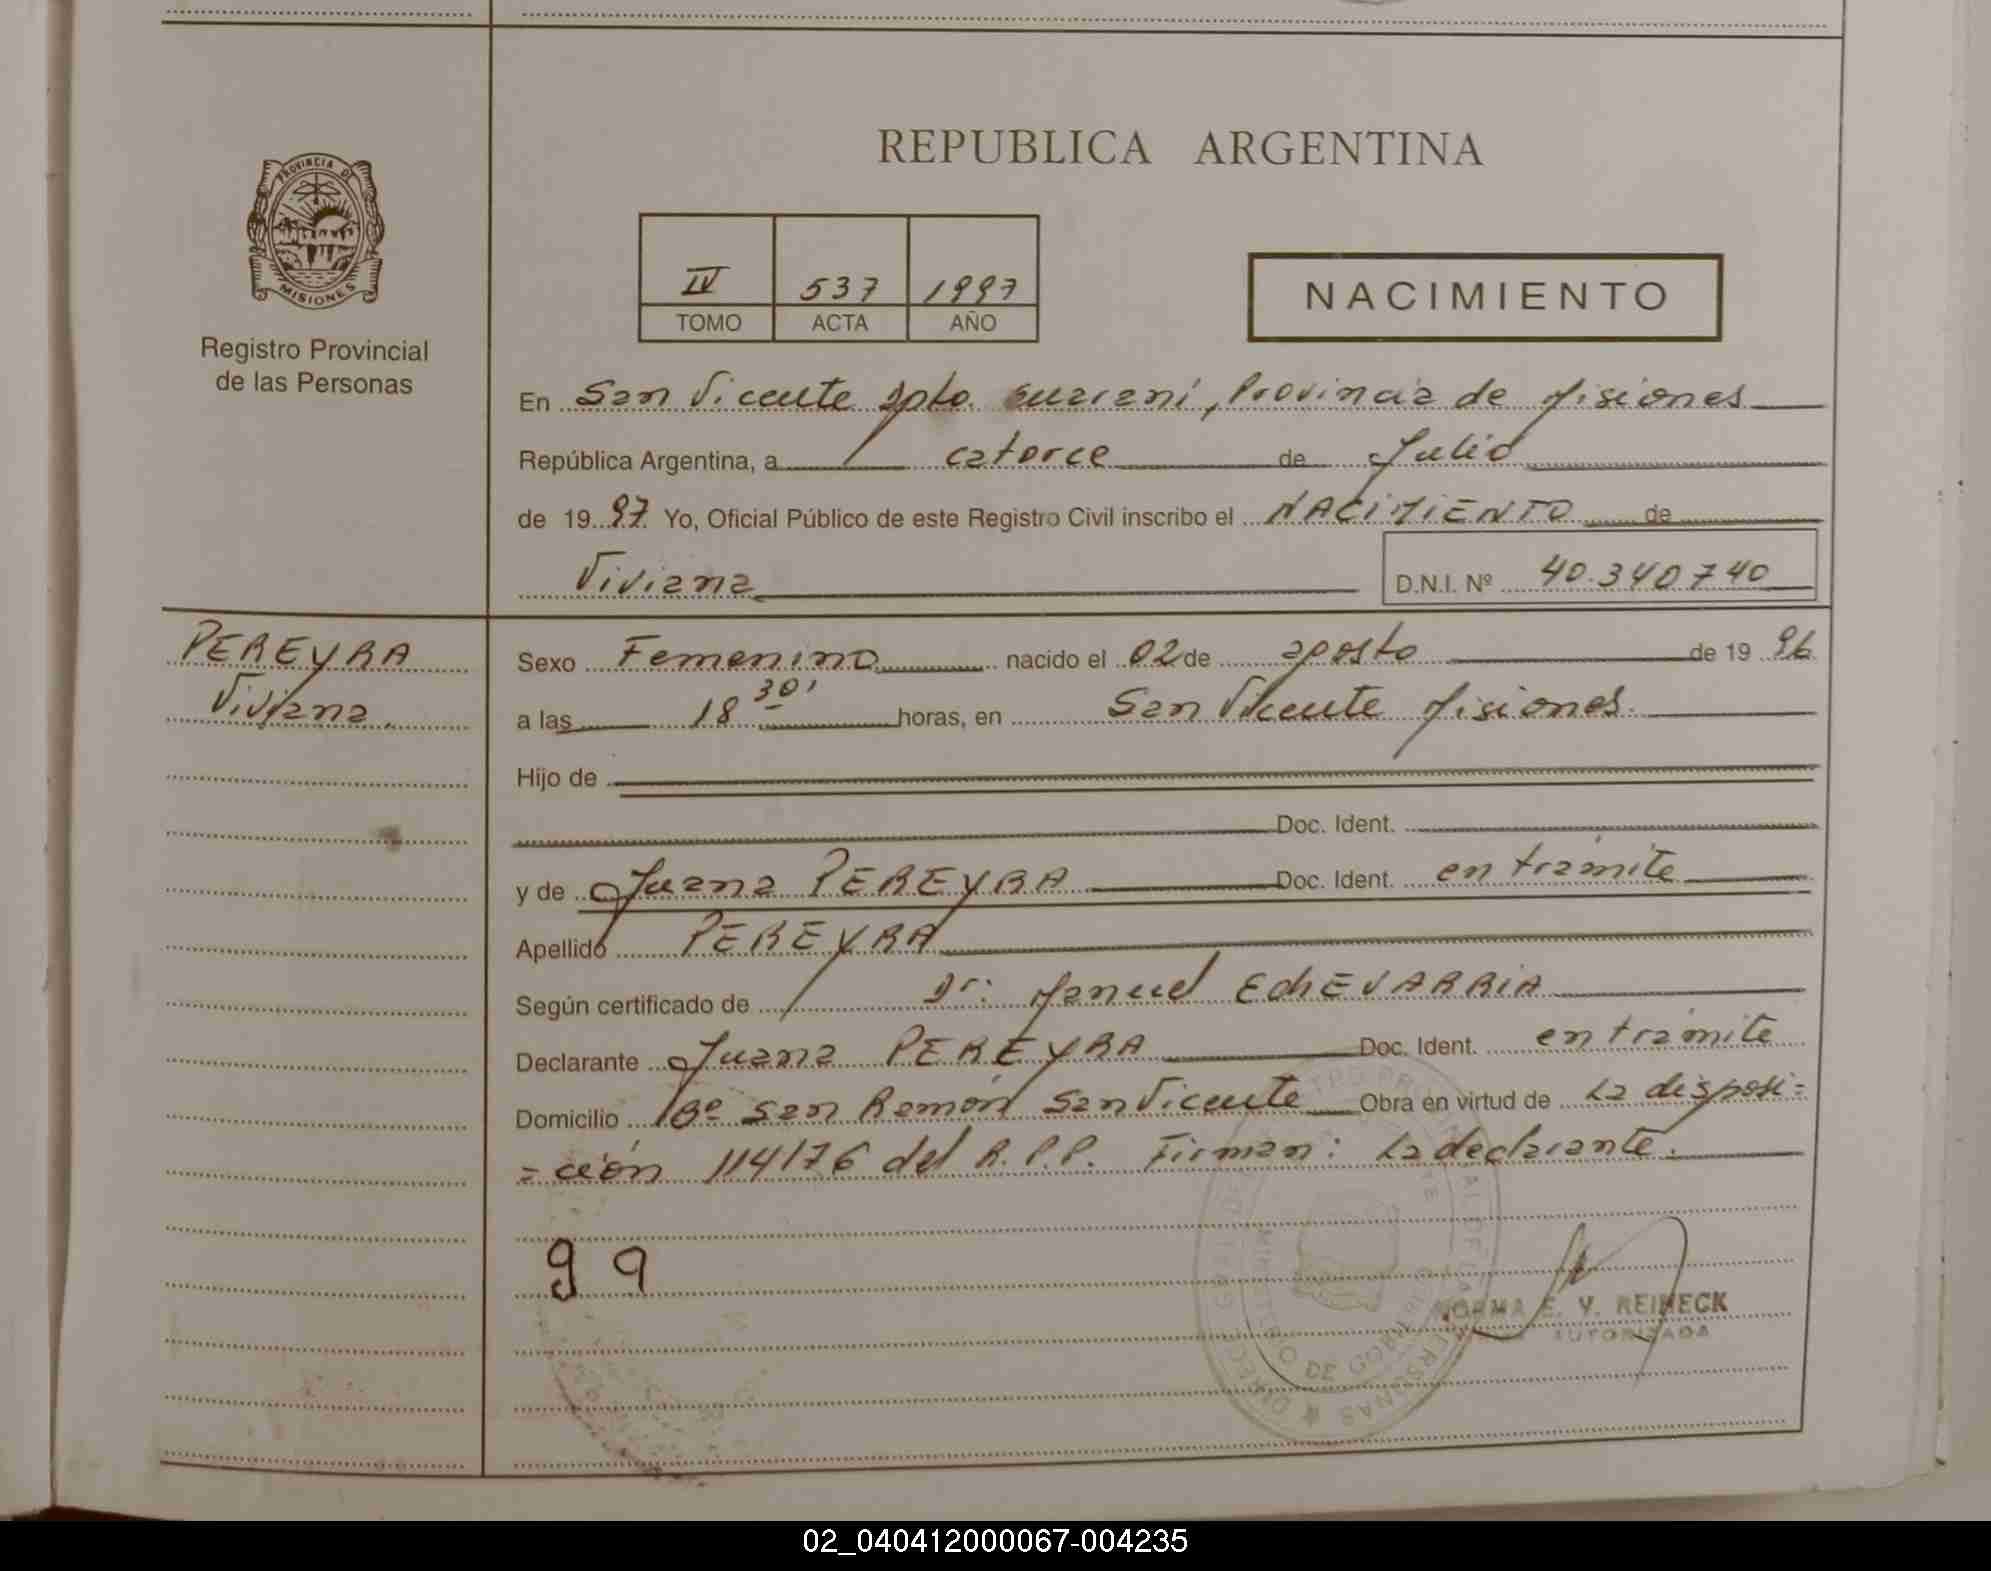 REPUBLICA ARGENTINA
PROVINCIA DE
MISIONES
Registro Provincial
de las Personas
IV 537 1997
TOMO ACTA AÑO
NACIMIENTO
En San Vicente Dpto. Guaraní, Provincia de Misiones
República Argentina, a catorce de Julio
de 1997 Yo, Oficial Público de este Registro Civil inscribo el NACIMIENTO de
Viviana D.N.I. Nº 40.340740
PEREYRA
Viviana.
Sexo Femenino nacido el 02 de agosto de 1996
a las 18 30' horas, en San Vicente Misiones.
Hijo de
Doc. Ident.
y de Juana PEREYRA Doc. Ident. en trámite
Apellido PEREYRA
Según certificado de Dr: Manuel EchEVARRIA
Declarante Juana PEREYRA Doc. Ident. en trámite
Domicilio Bº San Ramón San Vicente Obra en virtud de La disposi=
=ción 114/76 del R.P.P. Firman: La declarante.
99
NORMA E. V. REINECK
AUTORIZADA
02_040412000067-004235